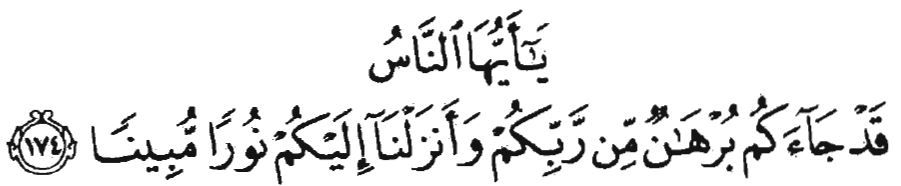 يَٰٓأَيُّهَا ٱلنَّاسُ
قَدْ جَآءَكُم بُرْهَٰنٌ مِّن رَّبِّكُمْ وَأَنزَلْنَآ إِلَيْكُمْ نُورًا مُّبِينًا ١٧٤